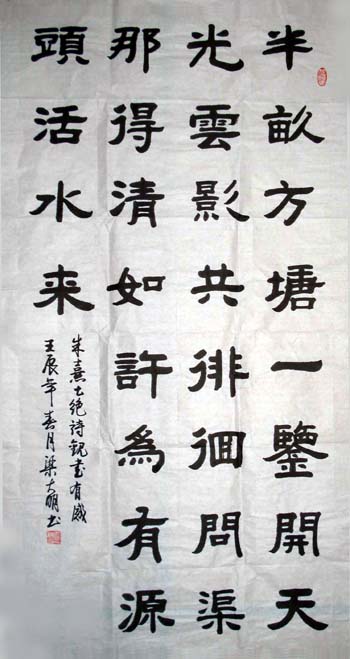 半畝方塘一鑒開天
光雲影共徘徊問渠
那得清如許為有源
頭活水来
朱熹七绝诗觀書有感
壬辰年春月梁大明书